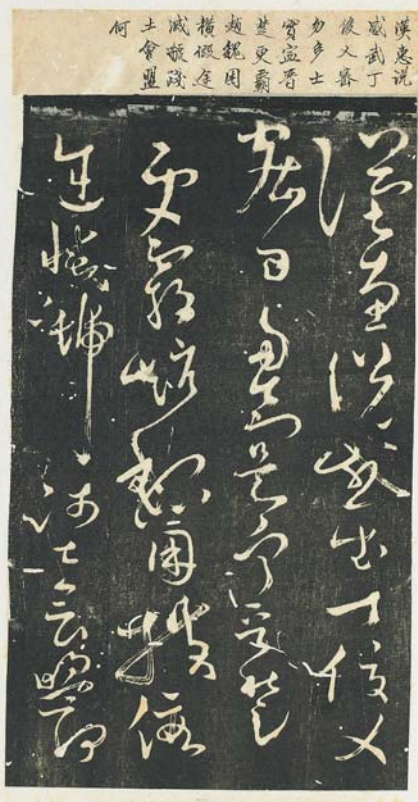 漢惠説
感武丁
俊乂密
勿多士
寔寧晉
楚更霸
趙魏困
橫假途
滅虢踐
土會盟
何
漢惠説感武丁俊乂
密勿多士寔寧晉楚
更霸趙魏困橫假
途滅虢踐土會盟何